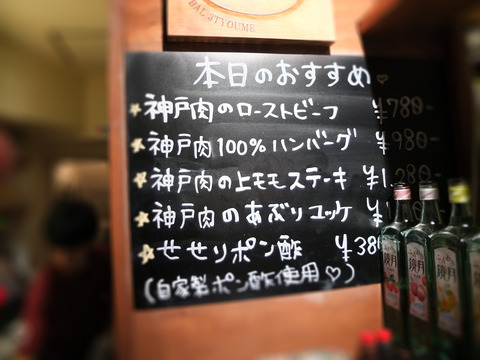 BAL 3TYOUME
本日のおすすめ♡
☆神戸肉のローストビーフ ¥780-
☆神戸肉100%ハンバーグ ¥980-
☆神戸肉の上モモステーキ ¥1.280-
☆神戸肉のあぶりユッケ ¥
☆せせりポン酢 ¥380
(自家製ポン酢使用♡)
鏡月
鏡月
鏡月